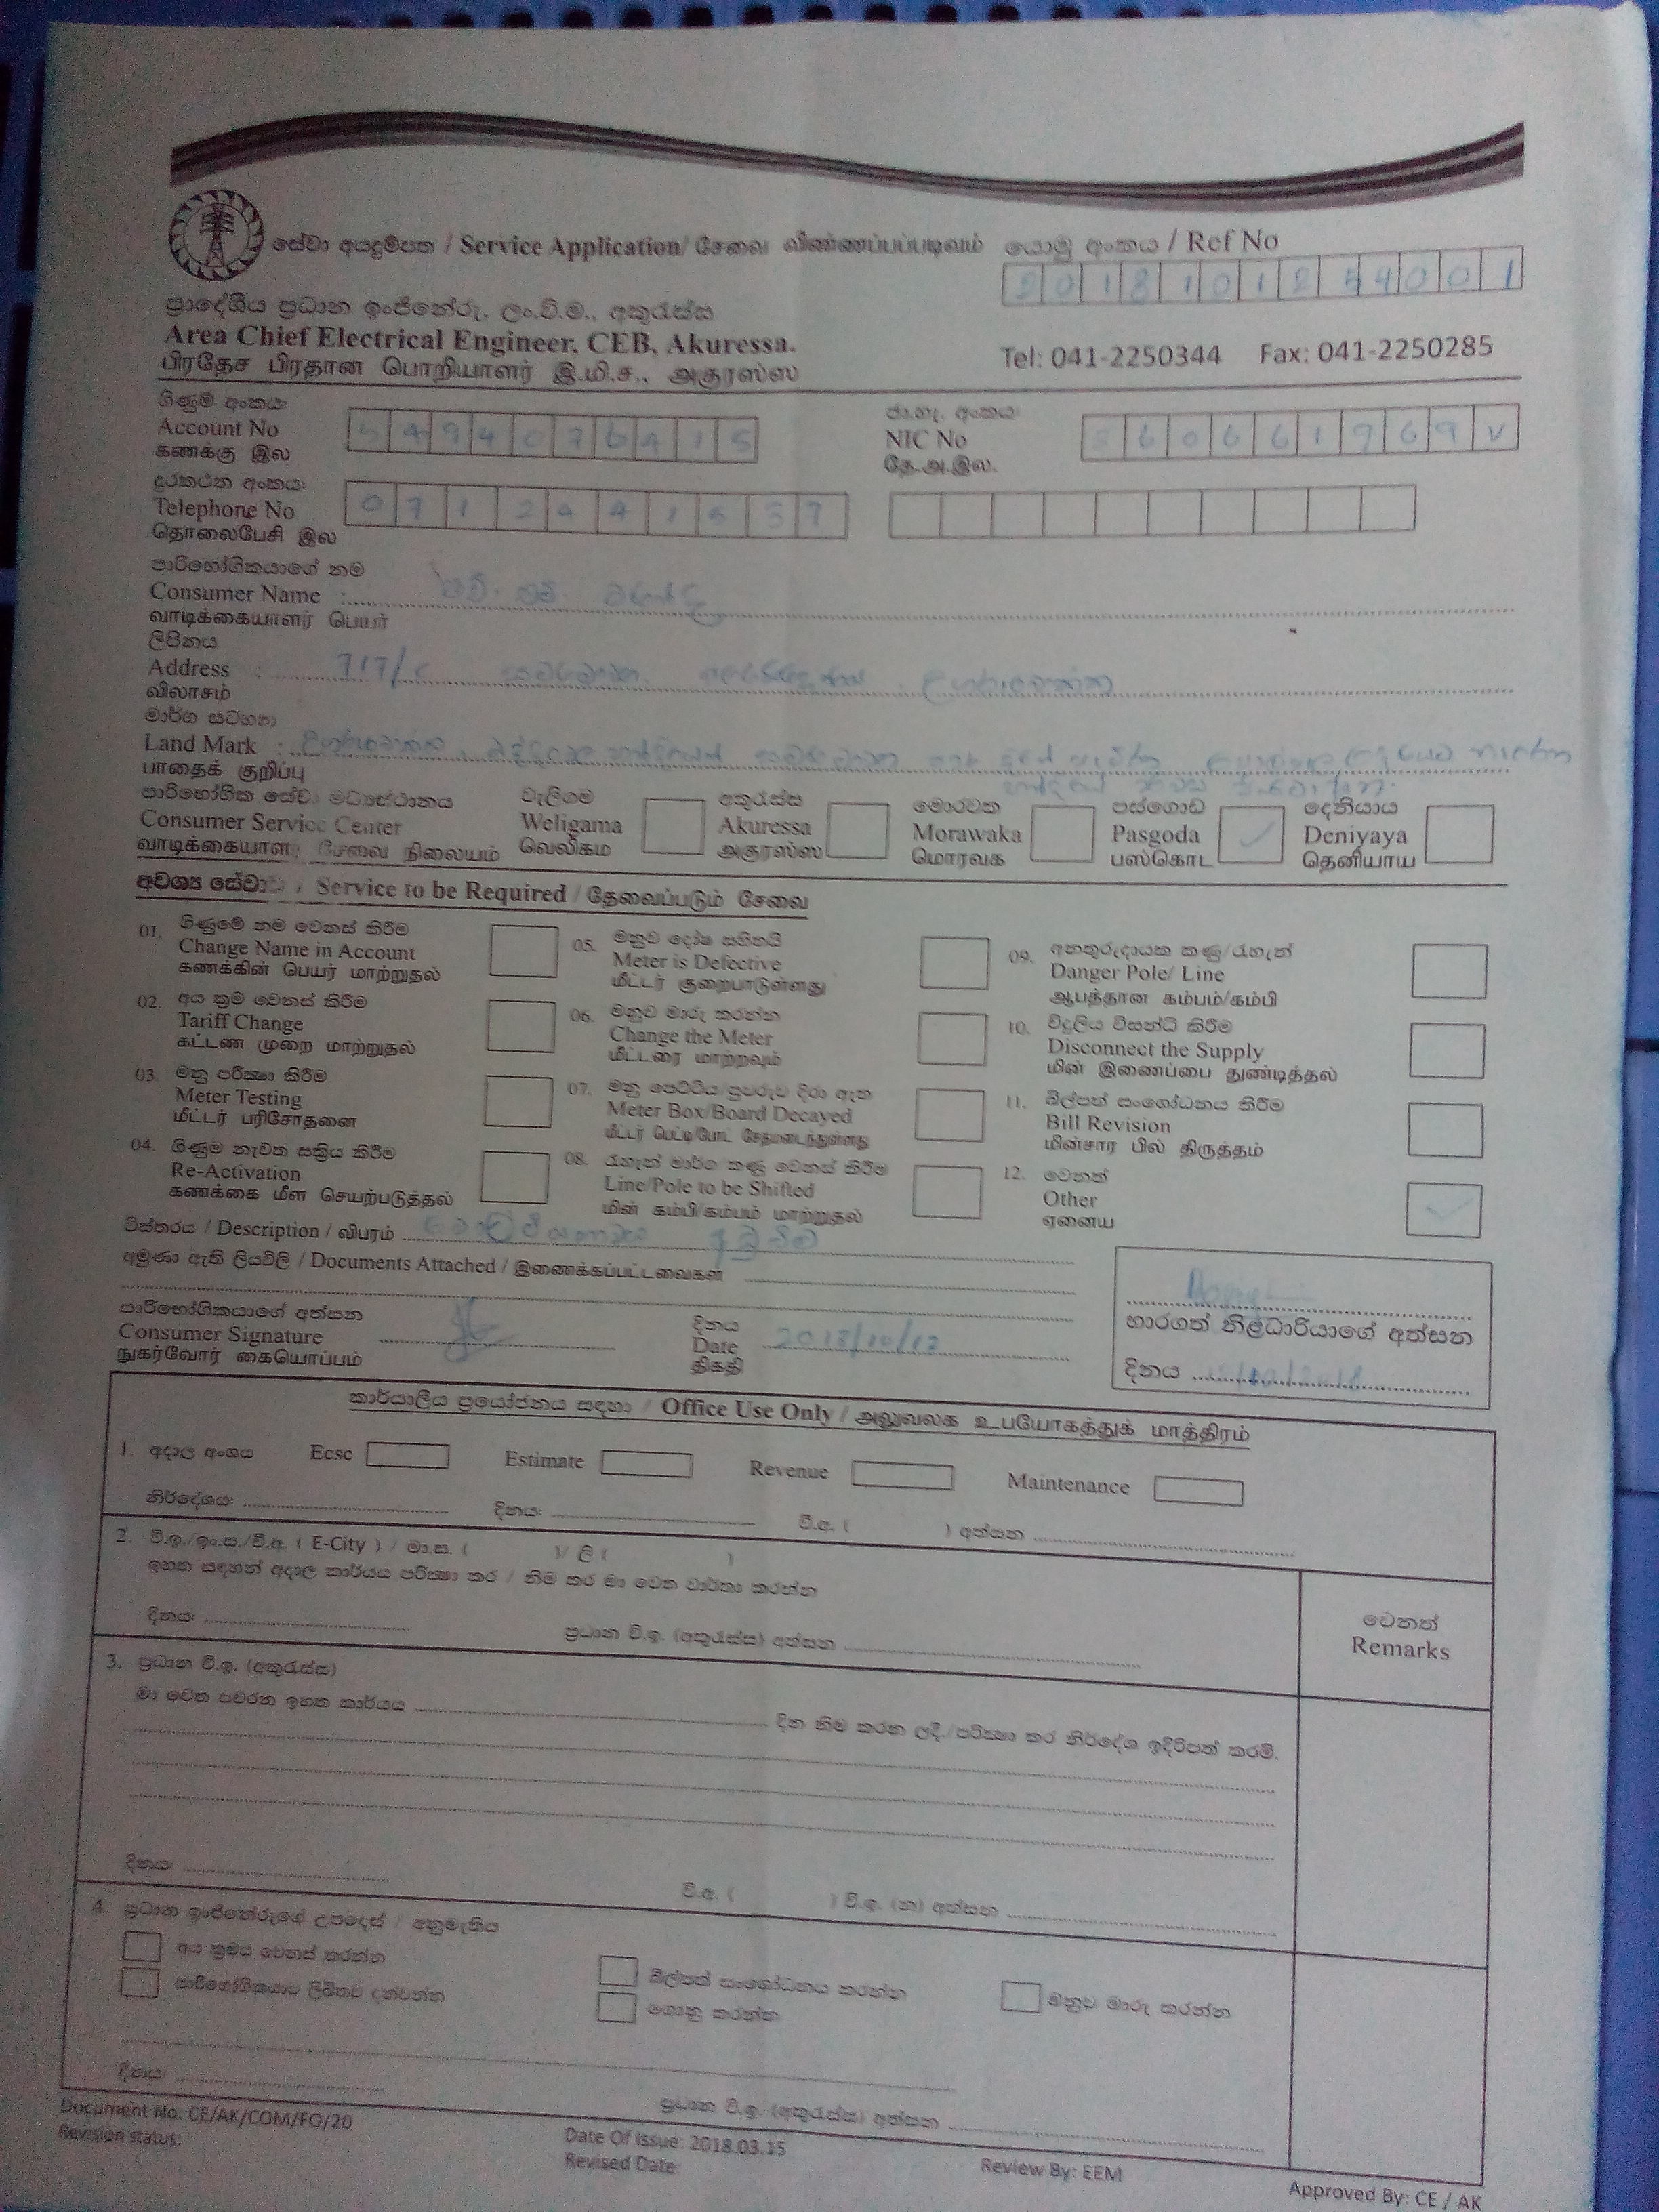 සේවා අයදුම්පත / Service Application/ சேவை விண்ணப்பப்படிவம் යොමු අංකය / Ref No
ප්‍රාදේශීය ප්‍රධාන ඉංජිනේරු, ලං.වි.ම., අකුරැස්ස
Area Chief Electrical Engineer, CEB, Akuressa.
Tel: 041-2250344 Fax: 041-2250285
பிரதேச பிரதான பொறியாளர் இ.மி.ச., அகுரஸ்ஸ
ගිණුම් අංකය:
Account No
கணக்கு இல
ජා.හැ. අංකය
NIC No
தே.அ.இல.
දුරකථන අංකය:
Telephone No 071 2441537
தொலைபேசி இல
පාරිභෝගිකයාගේ නම
Consumer Name :
வாடிக்கையாளர் பெயர்
ලිපිනය
Address : 717/c
விலாசம்
මාර්ග සටහන
Land Mark :
பாதைக் குறிப்பு
පාරිභෝගික සේවා මධ්‍යස්ථානය වැලිගම අකුරැස්ස මොරවක පස්ගොඩ දෙනියාය
Consumer Service Center Weligama Akuressa Morawaka Pasgoda Deniyaya
வாடிக்கையாளர் சேவை நிலையம் வெலிகம அகுரஸ்ஸ மொரவக பஸ்கொட தெனியாய
අවශ්‍ය සේවාව / Service to be Required / தேவைப்படும் சேவை
01. ගිණුමේ නම වෙනස් කිරීම
Change Name in Account
கணக்கின் பெயர் மாற்றுதல்
02. අය ක්‍රම වෙනස් කිරීම
Tariff Change
கட்டண முறை மாற்றுதல்
03. මනු පරීක්ෂා කිරීම
Meter Testing
மீட்டர் பரிசோதனை
04. ගිණුම නැවත සක්‍රිය කිරීම
Re-Activation
கணக்கை மீள செயற்படுத்தல்
05. මනුව දෝෂ සහිතයි
Meter is Defective
மீட்டர் குறைபாடுள்ளது
06. මනුව මාරු කරන්න
Change the Meter
மீட்டரை மாற்றவும்
07. මනු පෙට්ටිය/පුවරුව දිරා ඇත
Meter Box/Board Decayed
மீட்டர் பெட்டி/போட் சேதமடைந்துள்ளது
08. රැහැන් මාර්ග කණු වෙනස් කිරීම
Line/Pole to be Shifted
மின் கம்பி/கம்பம் மாற்றுதல்
09. අනතුරුදායක කණු/රැහැන්
Danger Pole/ Line
ஆபத்தான கம்பம்/கம்பி
10. විදුලිය විසන්ධි කිරීම
Disconnect the Supply
மின் இணைப்பை துண்டித்தல்
11. බිල්පත් සංශෝධනය කිරීම
Bill Revision
மின்சார பில் திருத்தம்
12. වෙනත්
Other
ஏனைய
විස්තරය / Description / விபரம்
අමුණා ඇති ලියවිලි / Documents Attached / இணைக்கப்பட்டவைகள்
පාරිභෝගිකයාගේ අත්සන
Consumer Signature
நுகர்வோர் கையொப்பம்
දිනය
Date 2018/10/12
திகதி
භාරගත් නිළධාරියාගේ අත්සන
දිනය
කාර්යාලීය ප්‍රයෝජනය සඳහා / Office Use Only / அலுவலக உபயோகத்துக் மாத்திரம்
1. අදාල අංශය Ecsc Estimate Revenue Maintenance
නිර්දේශය: දිනය: වි.අ. ( ) අත්සන
2. වි.ඉ./ඉං.ස./වි.අ. ( E-City ) / මා.ස. ( )/ ලි ( )
ඉහත සඳහන් අදාල කාර්යය පරීක්ෂා කර / නිම කර මා වෙත වාර්තා කරන්න
දිනය: ප්‍රධාන වි.ඉ. (අකුරැස්ස) අත්සන
වෙනත්
Remarks
3. ප්‍රධාන වි.ඉ. (අකුරැස්ස)
මා වෙත පවරන ඉහත කාර්යය දින නිම කරන ලදී./පරීක්ෂා කර නිර්දේශ ඉදිරිපත් කරමි.
දිනය: වි.අ. ( ) වි.ඉ. (න) අත්සන
4. ප්‍රධාන ඉංජිනේරුගේ උපදෙස් / අනුමැතිය
අය ක්‍රමය වෙනස් කරන්න බිල්පත් සංශෝධනය කරන්න මනුව මාරු කරන්න
පාරිභෝගිකයාට ලිඛිතව දන්වන්න ගොනු කරන්න
දිනය: ප්‍රධාන වි.ඉ. (අකුරැස්ස) අත්සන
Document No: CE/AK/COM/FO/20 Date Of Issue: 2018.03.15 Review By: EEM Approved By: CE / AK
Revision status: Revised Date: